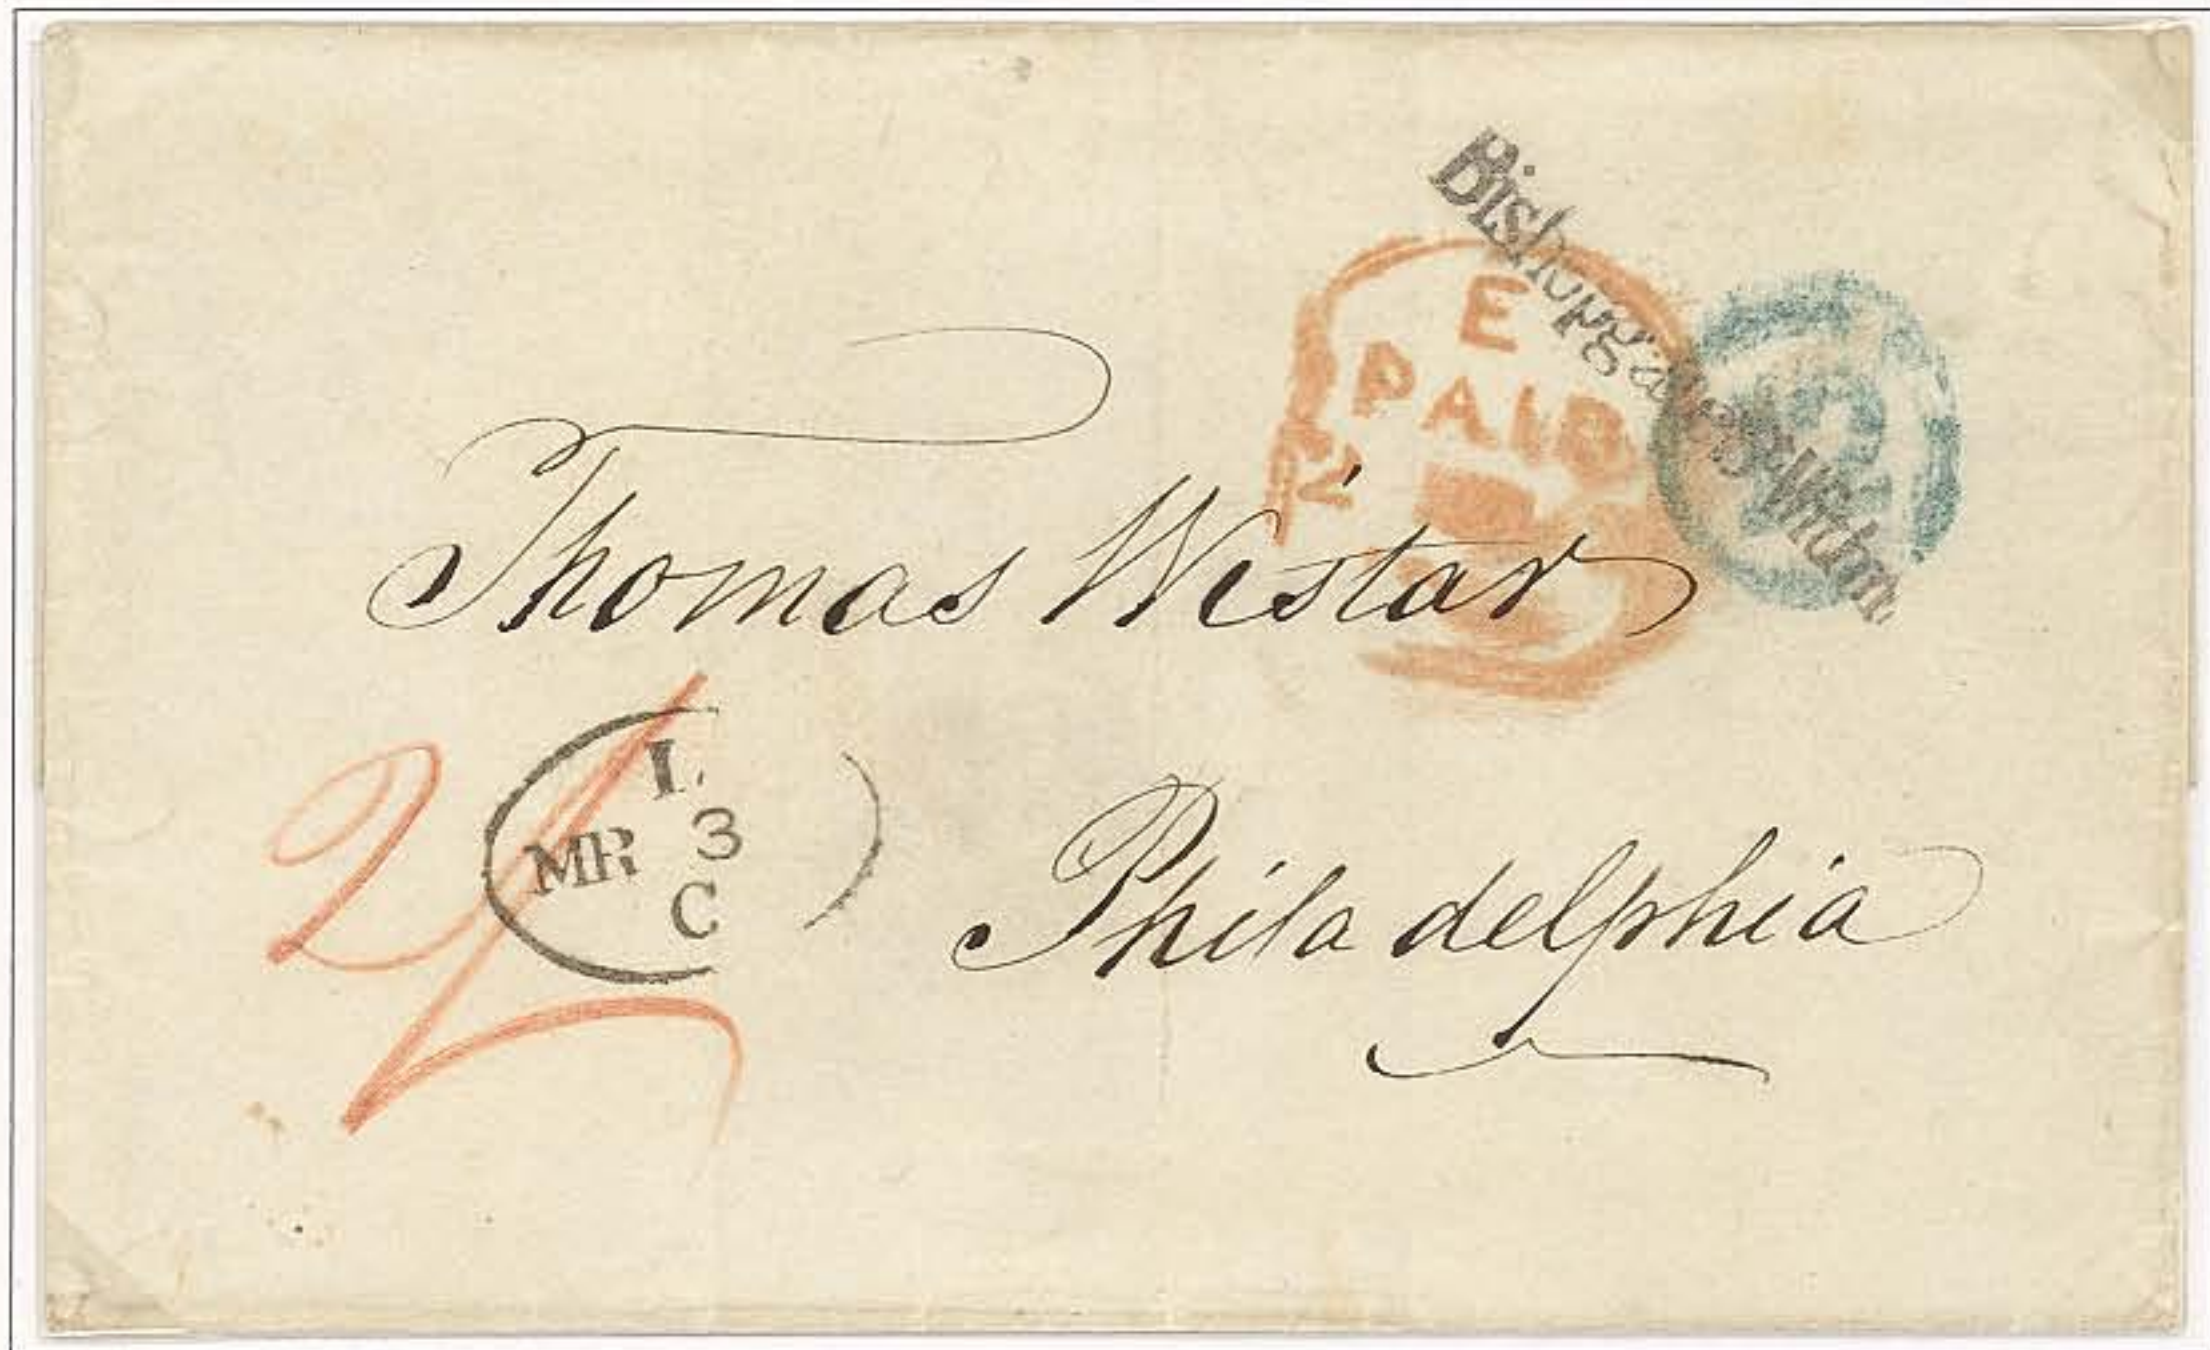 Bishopgate St Within
E
PAID
Thomas Wistar
2/
L
MR 3
C
Philadelphia